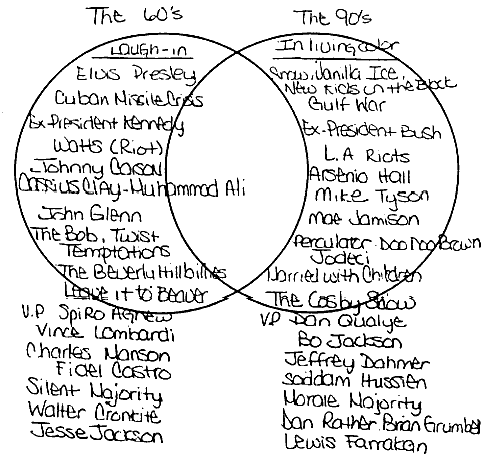 The 60's
LAUGH-IN
Elvis Presley
Cuban Missile Crisis
Ex-President Kennedy
Watts (Riot)
Johnny Carson
Cassius Clay-Muhammad Ali
John Glenn
The Bob, Twist
Temptations
The Beverly Hillbillies
Leave it to Beaver
V.P Spiro Agnew
Vince Lombardi
Charles Manson
Fidel Castro
Silent Majority
Walter Crontite
Jesse Jackson
The 90's
In living color
Snow, Vanilla Ice,
New Kids on the Block
Gulf War
Ex-President Bush
L.A Riots
Arsenio Hall
Mike Tyson
Mae Jamison
Perculator Doo Doo Brown
Jodeci
Married with Children
The Cosby Show
V.P Dan Qualye
Bo Jackson
Jeffrey Dahmer
Saddam Hussien
Morale Majority
Dan Rather, Brian Grumbel
Lewis Farrakan